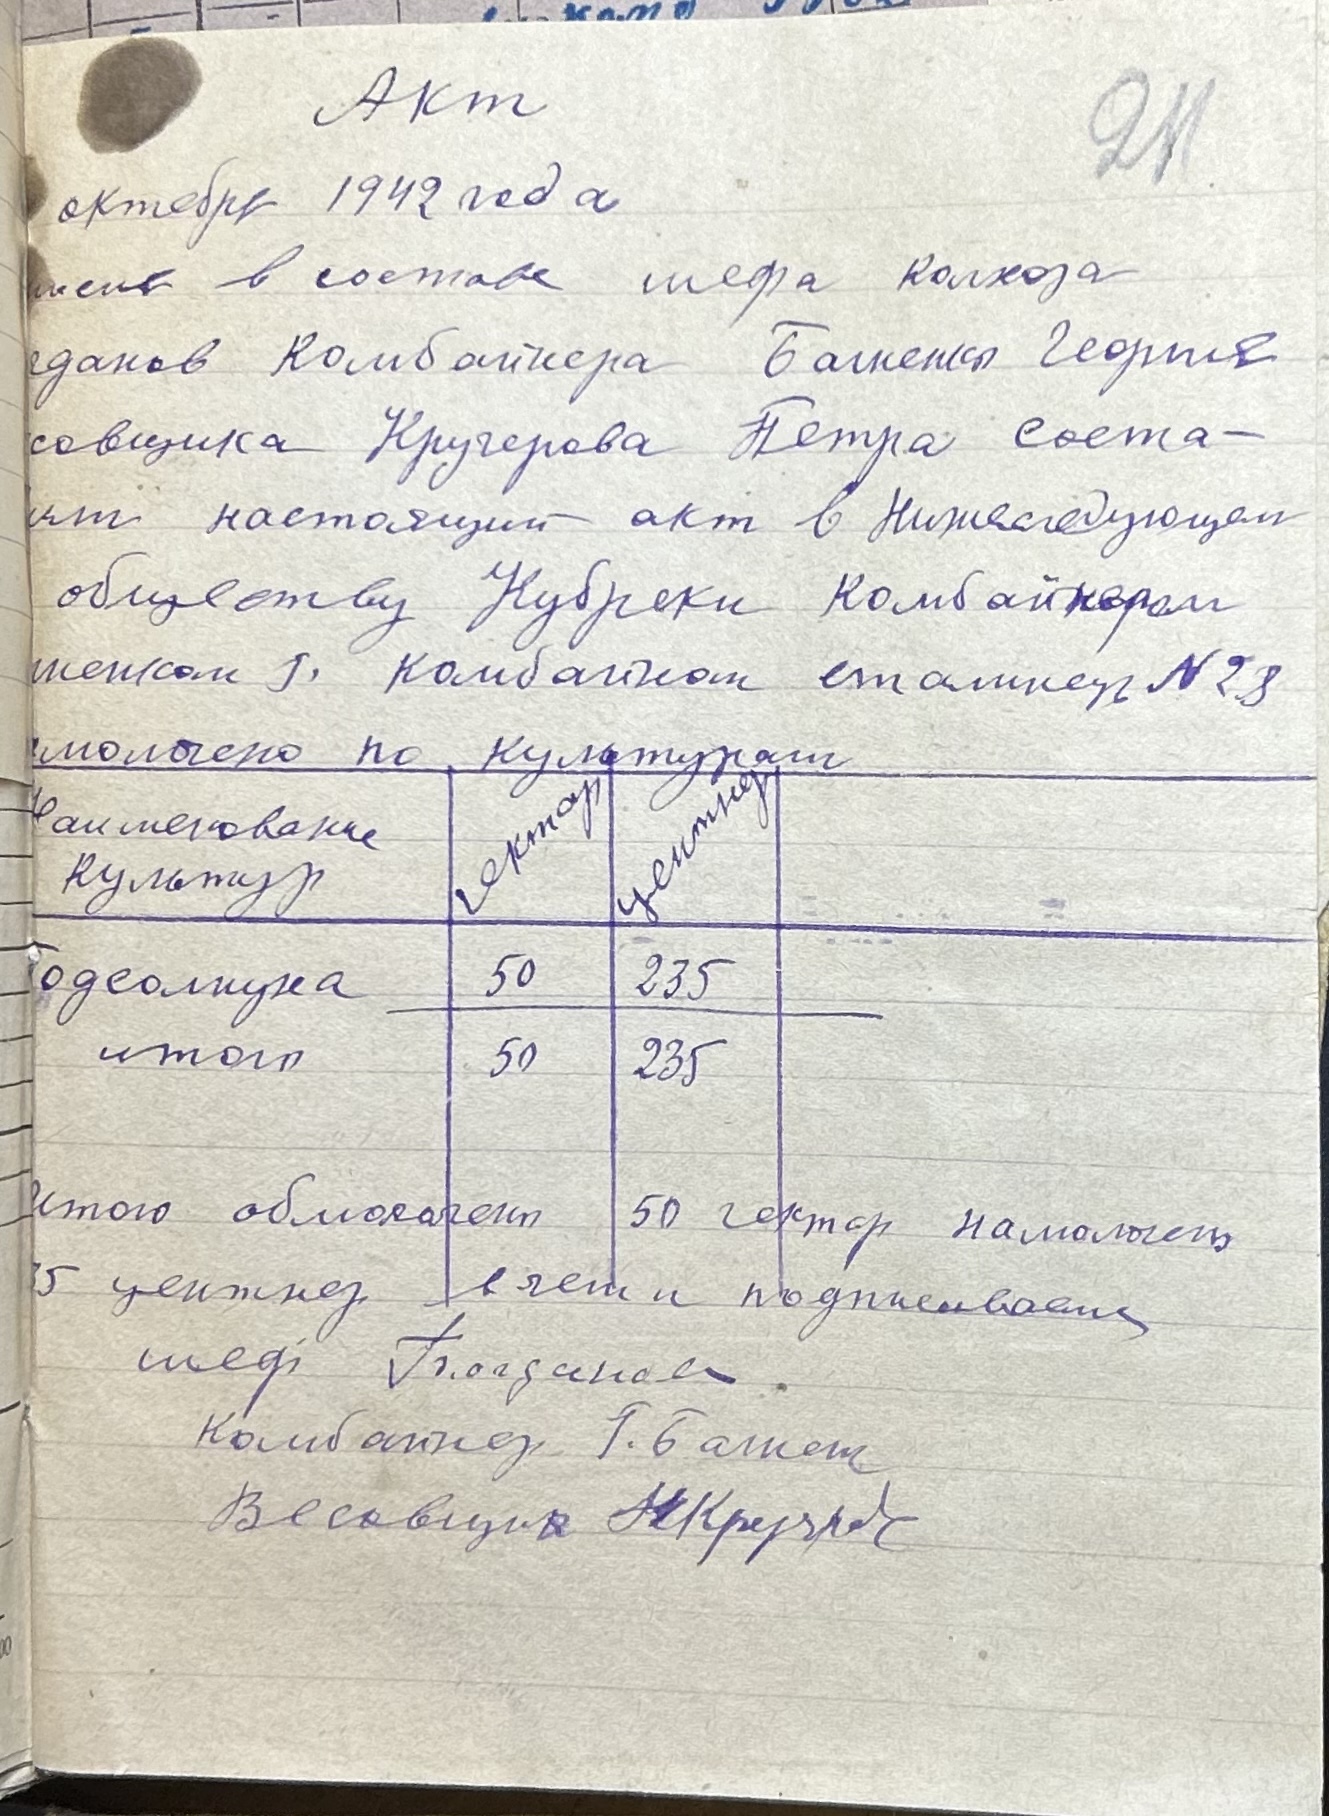 Акт
211
октебря 1942 года
в составе шефа колхоза
еданов Комбайнера Баженка Георгия
совщика Кручерова Петра соста-
настоящий акт в Нижеследующем
обществу Кубреки Комбайнером
женком Г. Комбайном сталинец N 28
молочено по культурам
Наименование
культур
гектар
центнер
Подсолнуха 50 235
итого 50 235
Итого обмолочено 50 гектар намолочено
35 центнер в чем и подписываемся
шеф Богданов
Комбайнер Г. Бажен
Весовщик